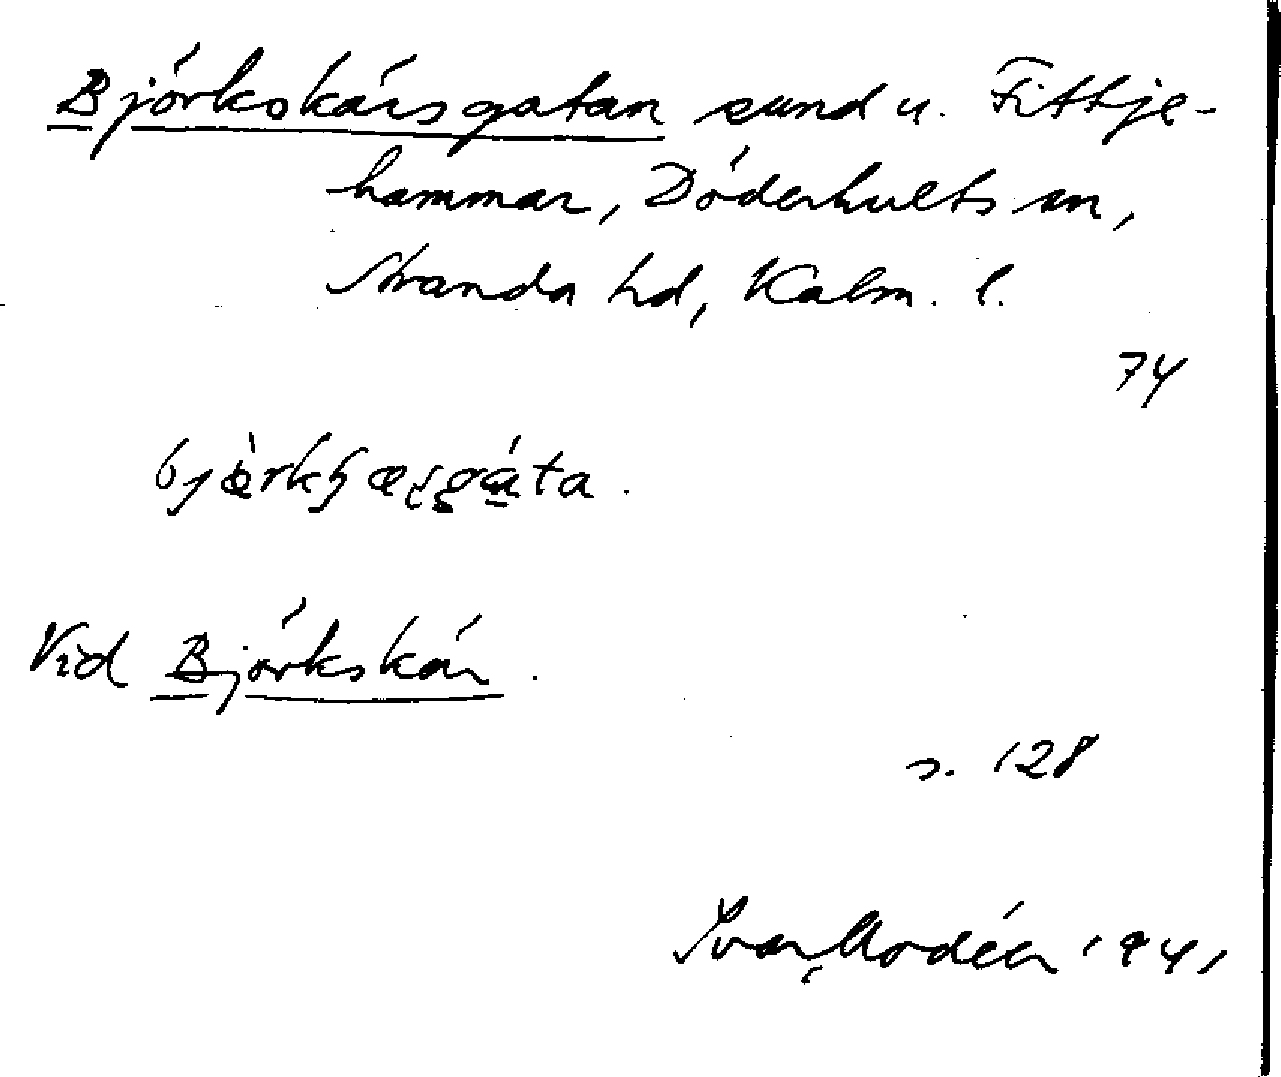 Björkskärsgatan sund u. Fittje-
hammar, Döderhults sn,
Stranda hd, Kalm. l.
74
Vid Björkskär.
s. 128
Ivar Modéer 1941